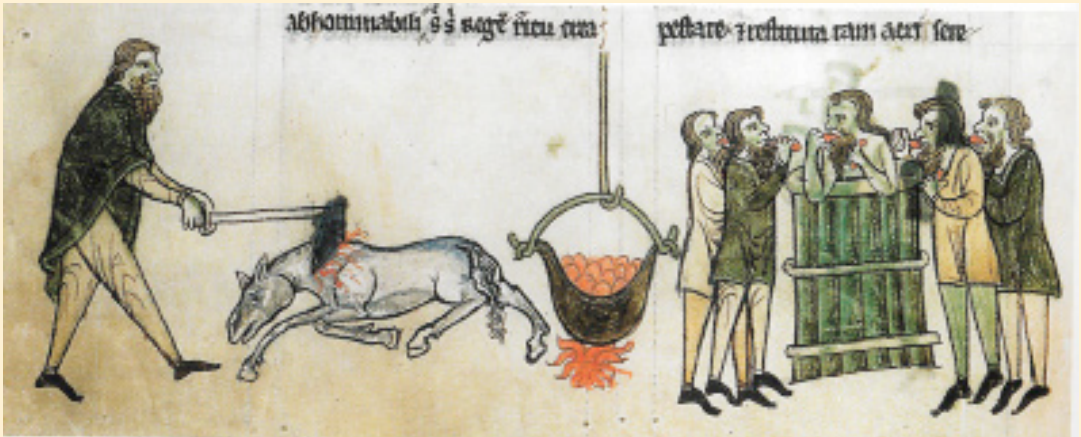 abhominabili, regẽ ritu crea pestate ⁊ restituta tam aeri sere